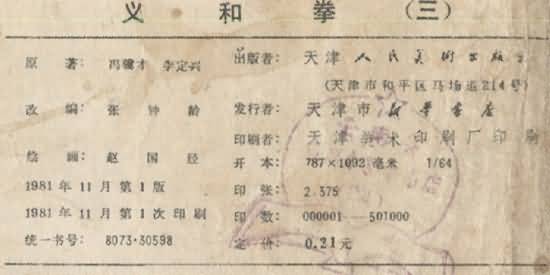 义和拳（三）
原著：冯骥才 李定兴
改编：张钟龄
绘画：赵国经
1981年11月第1版
1981年11月第1次印刷
统一书号：8073·30598
出版者：天津人民美术出版社
（天津市和平区马场道214号）
发行者：天津市新华书店
印刷者：天津美术印刷厂印刷
开本：787×1092毫米 1/64
印张：2.375
印数：000001—501000
定价：0.21元